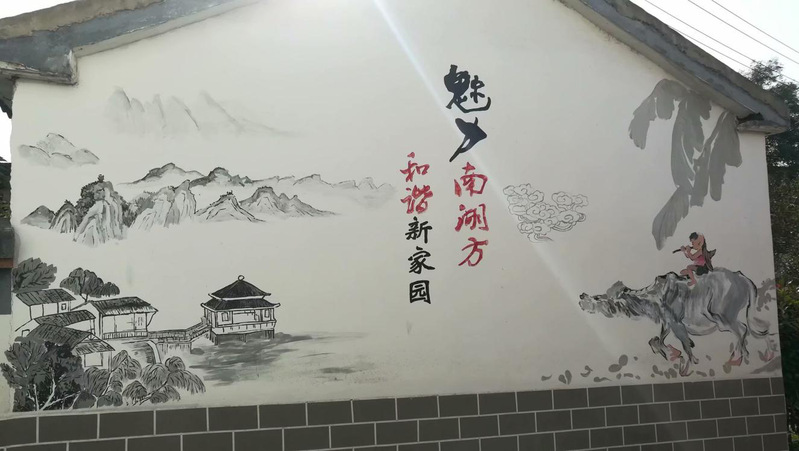 魅力南湖方
和谐新家园